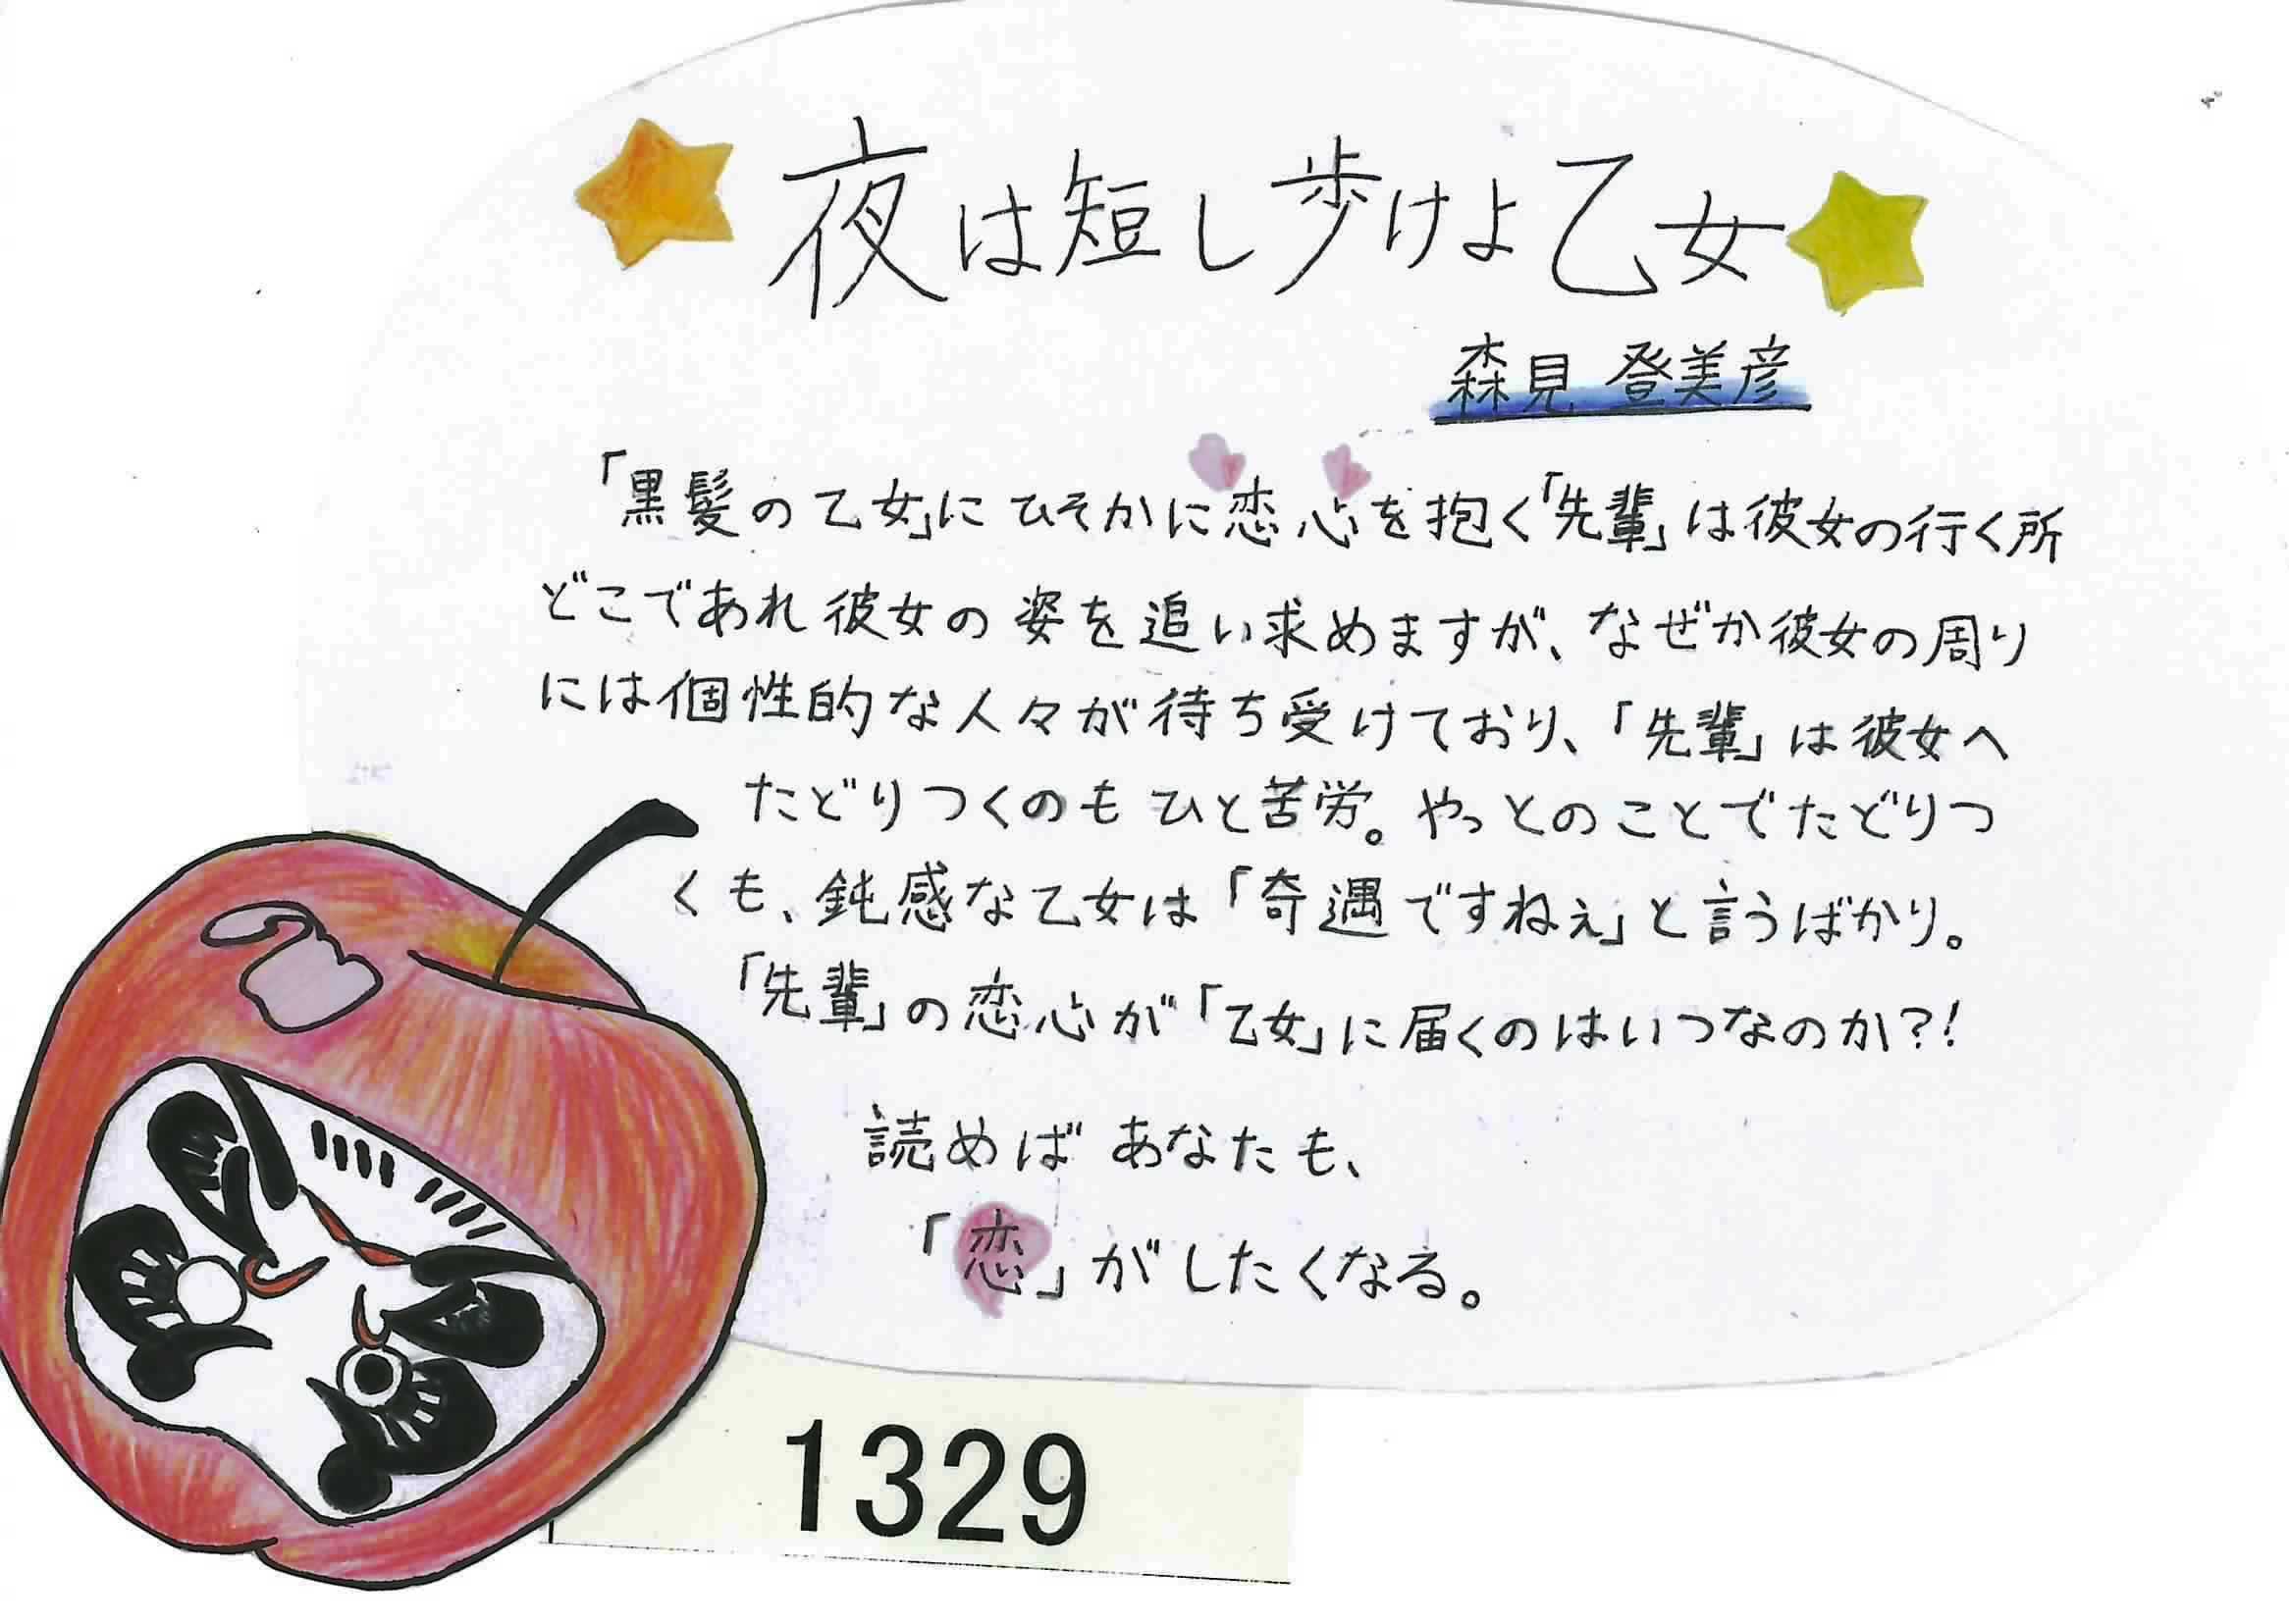 夜は短し歩けよ乙女
森見 登美彦
「黒髪の乙女」にひそかに恋心を抱く「先輩」は彼女の行く所
どこであれ彼女の姿を追い求めますが、なぜか彼女の周り
には個性的な人々が待ち受けており、「先輩」は彼女へ
たどりつくのもひと苦労。やっとのことでたどりつ
くも、鈍感な乙女は「奇遇ですねぇ」と言うばかり。
「先輩」の恋心が「乙女」に届くのはいつなのか?!
読めばあなたも、
「恋」がしたくなる。
1329